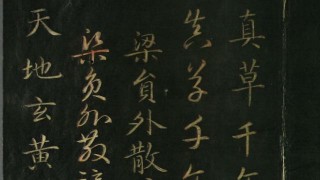 真草千字
真草千字
梁員外散
梁員外散
天地玄黄